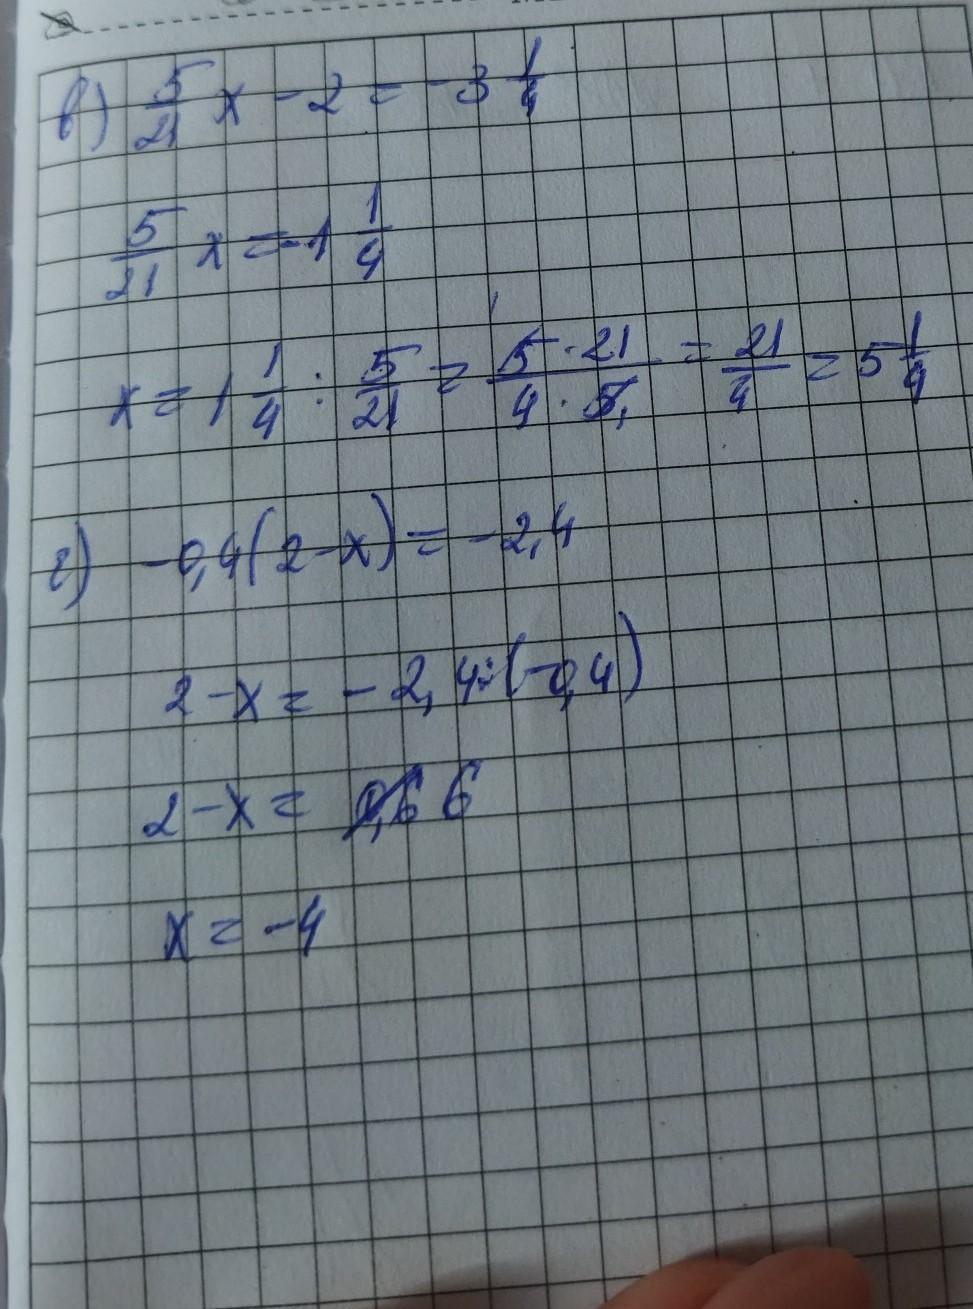 в) 5/21 x - 2 = -3 1/4
5/21 x = -1 1/4
x = 1 1/4 : 5/21 = 5 · 21 / 4 · 5 = 21/4 = 5 1/4
г) -0,4(2-x) = -2,4
2-x = -2,4:(-0,4)
2-x = 6
x = -4